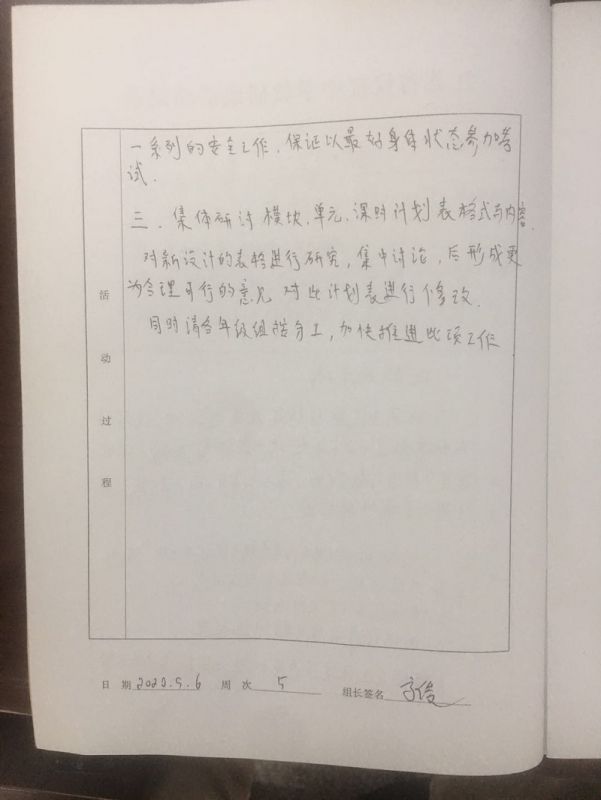 一系列的安全工作，保证以最好身体状态参加考
试.
三. 集体研讨模块、单元、课时计划表格式与内容.
对新设计的表格进行研究，集中讨论，后形成更
为合理可行的意见 对此计划表进行修改.
同时请各年级组按分工，加快推进此项工作
活
动
过
程
日 期 2022.5.6 周 次 5 组长签名